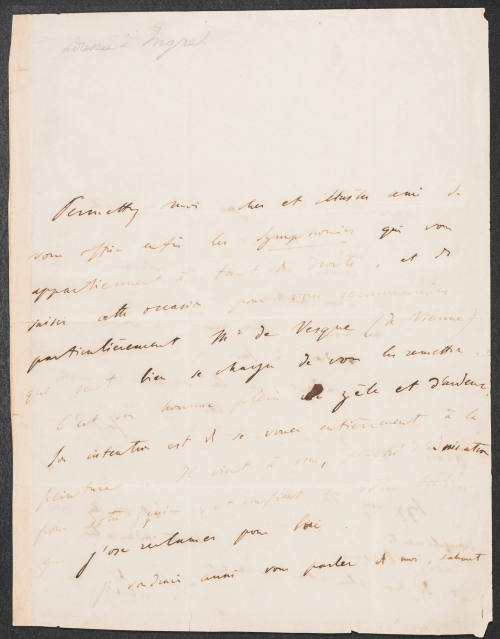 adressée à Ingres
Permettez moi cher et illustre ami de
vous offrir enfin les Symphonies qui vous
appartiennent à tant de droits, et de
saisir cette occasion pour vous recommander
particulièrement Mr de Vesque (de Vienne)
qui veut bien se charger de vous les remettre.
C'est un homme plein de zèle et d'ardeur.
Son intention est de se vouer entièrement à la
peinture. Il vient à vous,
pour votre génie, et
que j'ose réclamer pour lui.
Je voudrais aussi vous parler de moi, sachant